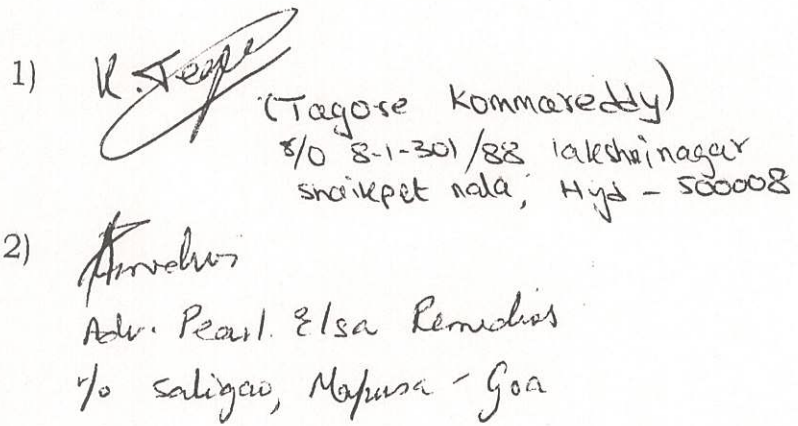 1) K. Tago
(Tagore Kommareddy)
r/o 8-1-301/88 lakshminagar
shaikpet nala, Hyd - 500008
2)
Adv. Pearl. Elsa Remedios
r/o Saligao, Mapusa - Goa